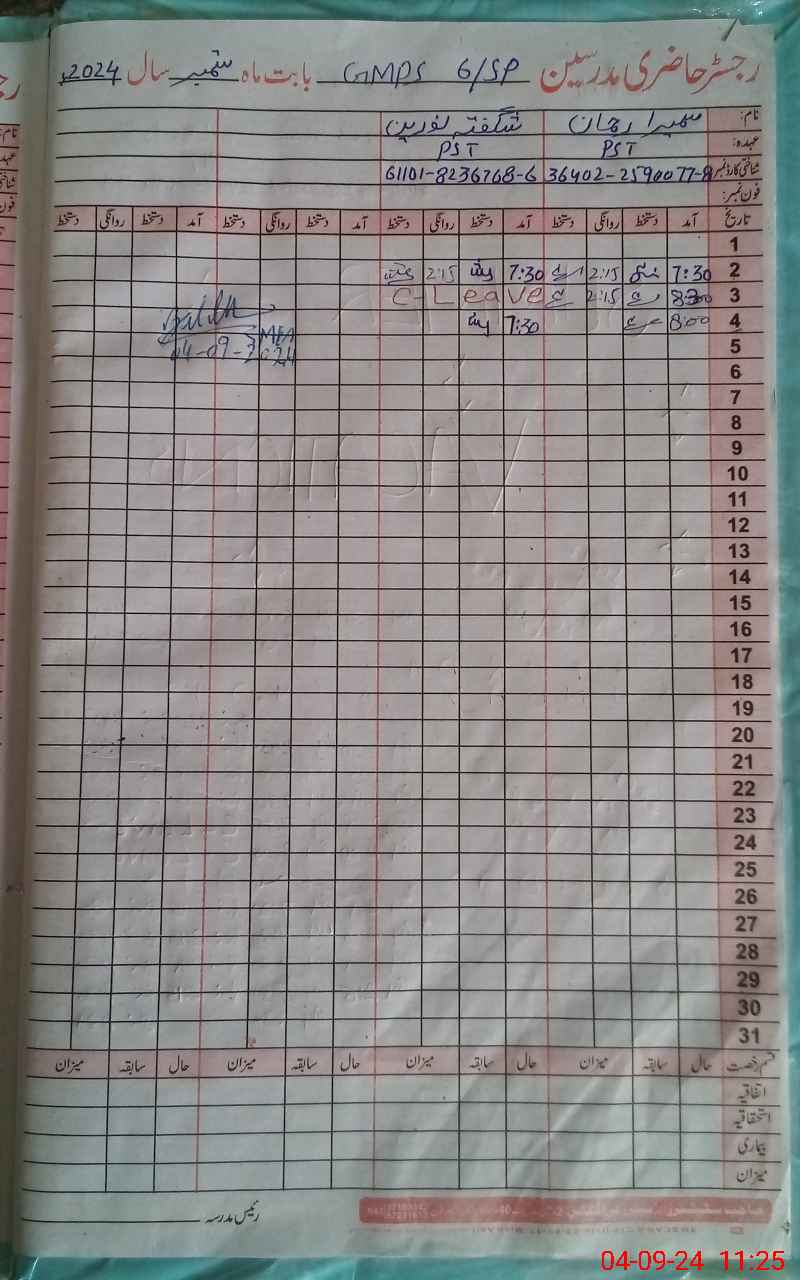 رجسٹر حاضری مدرسین GMPS 6/SP بابت ماہ ستمبر سال 2024
نام: سمیرا رحمان شگفتہ نورین
عہدہ: PST PST
شناختی کارڈ نمبر 36402-2590077-8 61101-8236768-6
فون نمبر:
تاریخ آمد دستخط روانگی دستخط آمد دستخط روانگی دستخط آمد دستخط روانگی دستخط آمد دستخط روانگی دستخط
1
2 7:30 2:15 7:30 2:15
3 8:00 2:15 C-Leave
4 8:00 7:30
MEA
04-09-2024
5
6
7
8
9
10
11
12
13
14
15
16
17
18
19
20
21
22
23
24
25
26
27
28
29
30
31
قسم رخصت حال سابقہ میزان حال سابقہ میزان حال سابقہ میزان حال سابقہ میزان
اتفاقیہ
استحقاقیہ
بیماری
میزان
رئیس مدرسہ
04-09-24 11:25